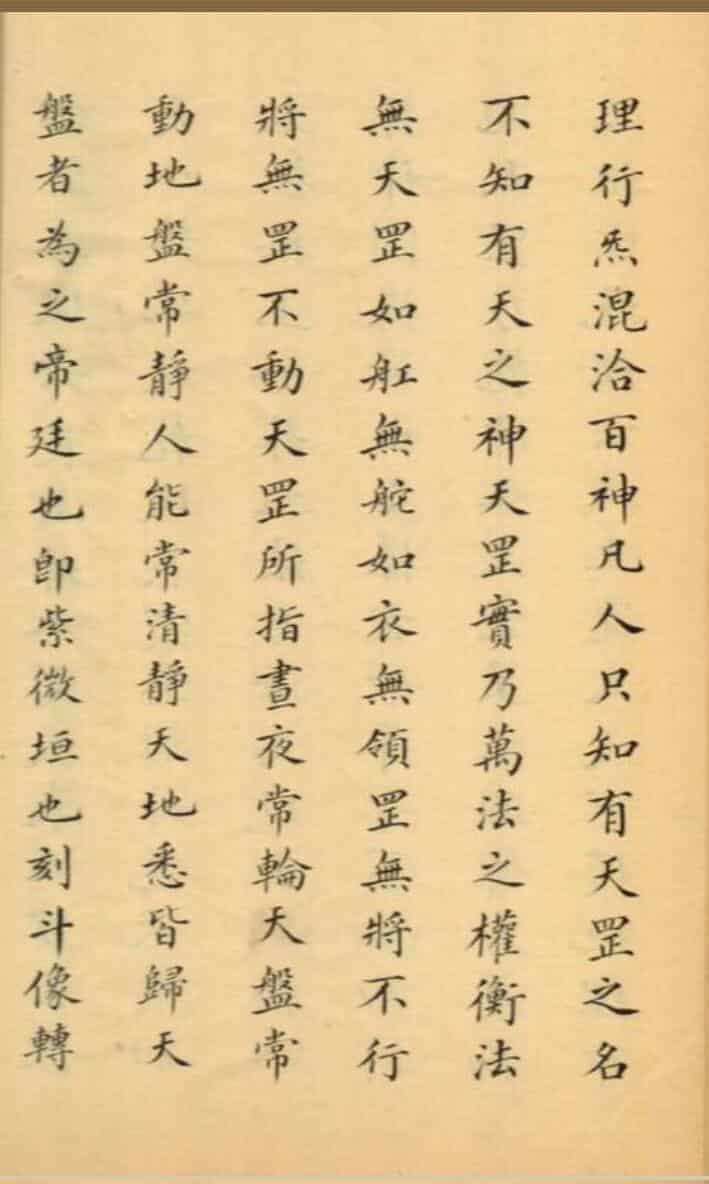 理行炁混洽百神凡人只知有天罡之名
不知有天之神天罡實乃萬法之權衡法
無天罡如舡無舵如衣無領罡無將不行
將無罡不動天罡所指晝夜常輪天盤常
動地盤常靜人能常清靜天地悉皆歸天
盤者為之帝廷也即紫微垣也刻斗像轉